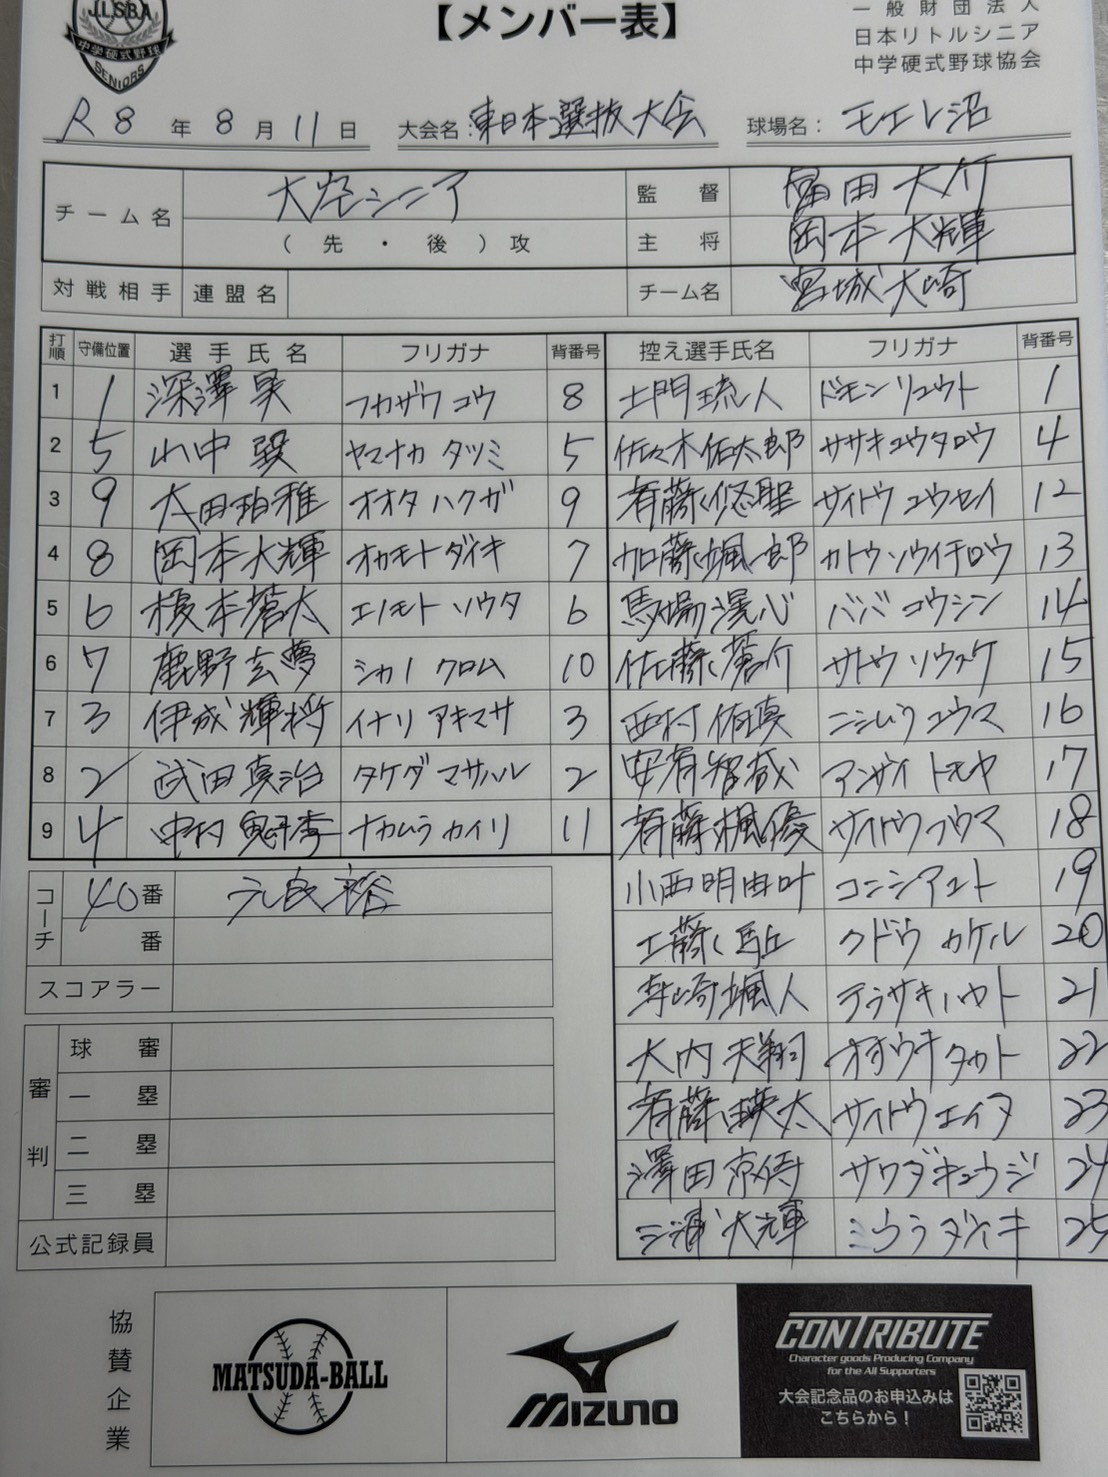 J.L.S.B.A
中学硬式野球
SENIORS
【メンバー表】
一般財団法人
日本リトルシニア
中学硬式野球協会
R8年8月11日 大会名:東日本選抜大会 球場名:モエレ沼
チーム名 大空シニア 監督 冨田大介
(先・後)攻 主将 岡本大輝
対戦相手 連盟名 チーム名 宮城大崎
打順 守備位置 選手氏名 フリガナ 背番号 控え選手氏名 フリガナ 背番号
1 1 深澤昊 フカザワコウ 8 土門琉人 ドモンリュウト 1
2 5 山中巽 ヤマナカタツミ 5 佐々木佑太郎 ササキユウタロウ 4
3 9 太田珀雅 オオタハクガ 9 斉藤悠聖 サイトウユウセイ 12
4 8 岡本大輝 オカモトダイキ 7 加藤颯一郎 カトウソウイチロウ 13
5 6 榎本蒼太 エノモトソウタ 6 馬場滉心 ババコウシン 14
6 7 鹿野玄夢 シカノクロム 10 佐藤蒼介 サトウソウスケ 15
7 3 伊成輝将 イナリアキマサ 3 西村佑真 ニシムラユウマ 16
8 2 武田真治 タケダマサハル 2 安斉智哉 アンザイトモヤ 17
9 4 中村魁李 ナカムラカイリ 11 斉藤楓優 サイトウフウマ 18
小西明由叶 コニシアユト 19
工藤駈 クドウカケル 20
寺崎颯人 テラサキハヤト 21
大内天翔 オオウチタカト 22
斉藤瑛太 サイトウエイタ 23
澤田京侍 サワダキョウジ 24
三浦大輝 ミウラダイキ 25
コーチ 40番 元良裕
番
スコアラー
審判 球審
一塁
二塁
三塁
公式記録員
協賛企業
MATSUDA-BALL
MIZUNO
CONTRIBUTE
Character goods Producing Company
for the All Supporters
大会記念品のお申込みは
こちらから!